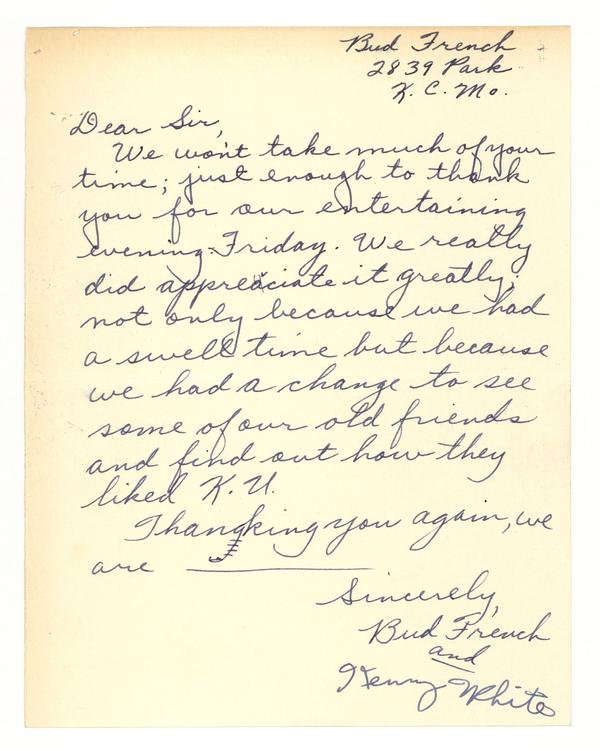 Bud French
2839 Park
K. C. Mo.
Dear Sir,
We won't take much of your
time; just enough to thank
you for our entertaining
evening Friday. We really
did appreaciate it greatly;
not only because we had
a swell time but because
we had a change to see
some of our old friends
and find out how they
liked K. U.
Thangking you again, we
are
Sincerely,
Bud French
and
Henry White